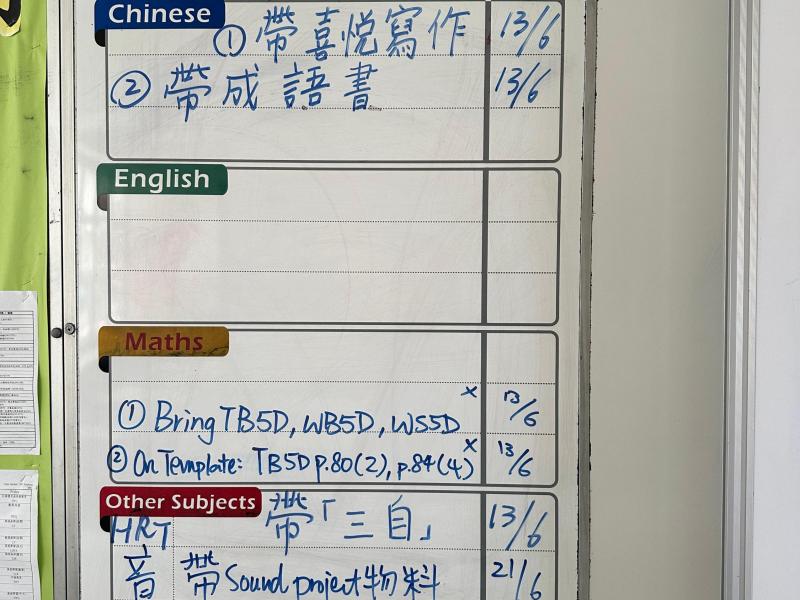 Chinese
① 帶喜悅寫作 13/6
② 帶成語書 13/6
English
Maths
① Bring TB5D, WB5D, WS5D x 13/6
② On Template: TB5D p.80(2), p.84(4) x 13/6
Other Subjects
HRT 帶「三自」 13/6
音 帶 Sound project 物料 21/6